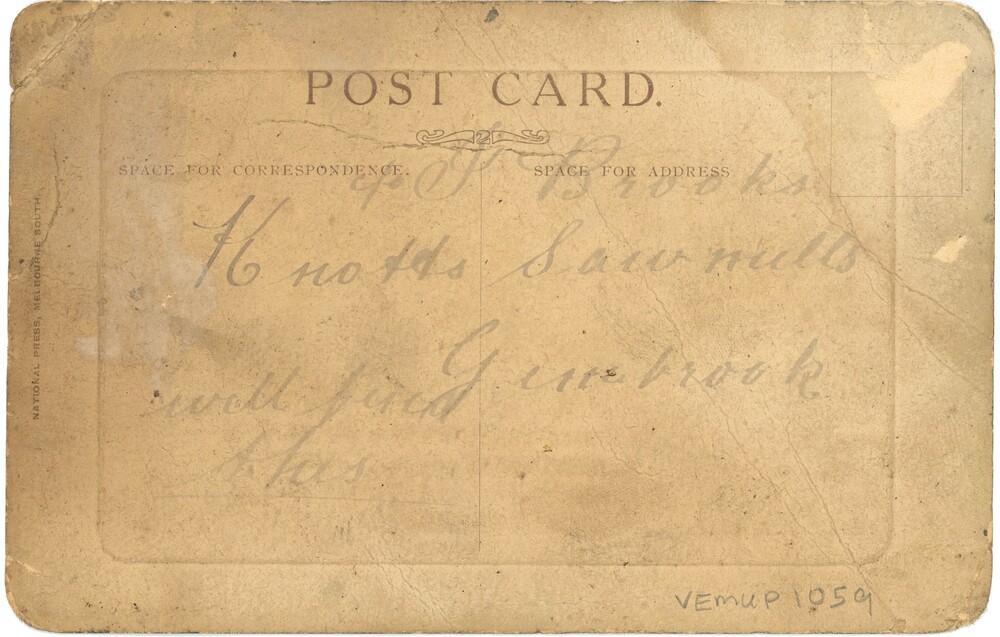 POST CARD.
2
SPACE FOR CORRESPONDENCE.
SPACE FOR ADDRESS
J Brooks
Knotts Sawmills
Gembrook
will find
this
NATIONAL PRESS, MELBOURNE SOUTH.
VEMUP 1059